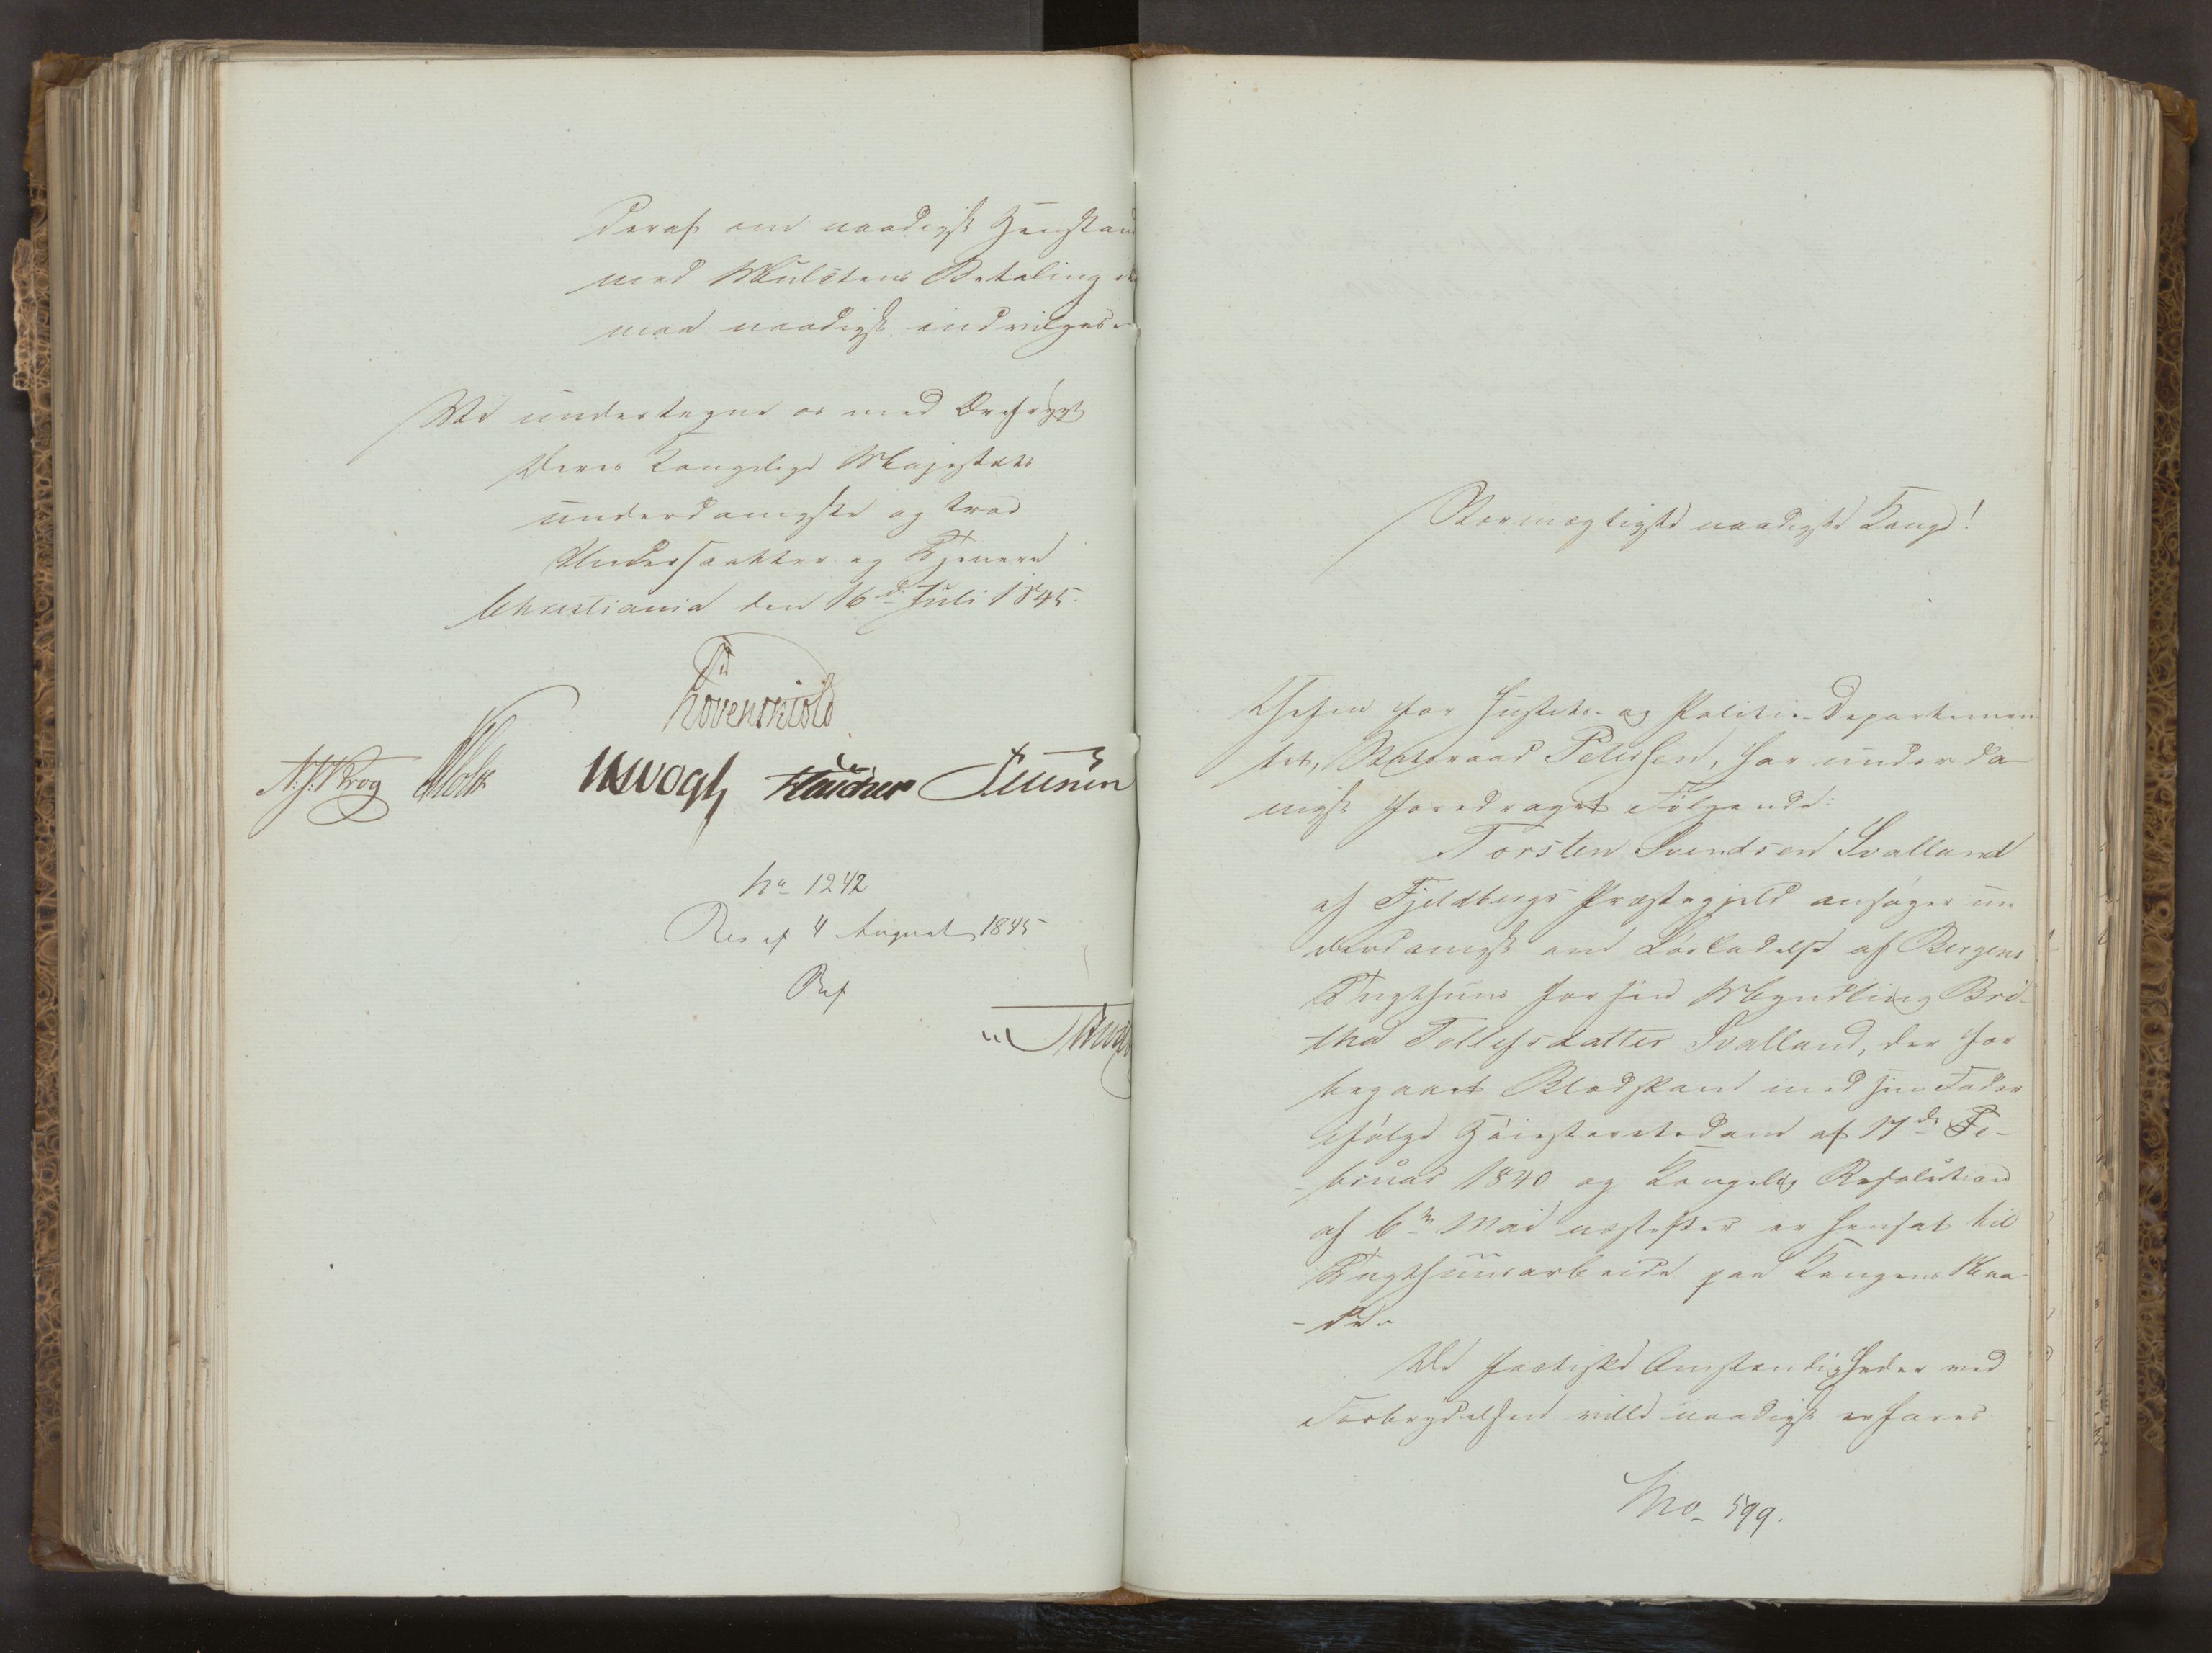 deraf om naadigst Henstand
med Mulctens Betaling ei
maa naadigst indvilges.
Vi undertegne os med Ærefrygt
Deres Kongelige Majestæts
underdanigste og troe
Undersaatter og Tjenere
Christiania den 16de Juli 1845.
Løvenskiold
N. J. Krog Holst JHVogt Hauchner Petersen
No 1242
Res af 4 August 1845
Ref
Stormægtigste naadigste Konge!
Chefen for Justits- og Politie-Departemen-
tet, Statsraad Petersen, har underda-
nigst foredraget Følgende:
Torsten Svendsen Svalland
af Fjeldbergs Præstegjeld ansøger un-
derdanigst om Løsladelse af Bergens
Tugthuus for sin Myndling Bri-
tha Tollefsdatter Svalland, der for
begaaet Blodskam med sin Fader
ifølge Høiesteretsdom af 17de Fe-
bruar 1840 og Kongelig Resolution
af 6te Mai næstefter er hensat til
Tugthuusarbeide paa Kongens Naa-
-de.
De factiske Omstændigheder ved
Forbrydelsen ville naadigst erfares
No. 599.